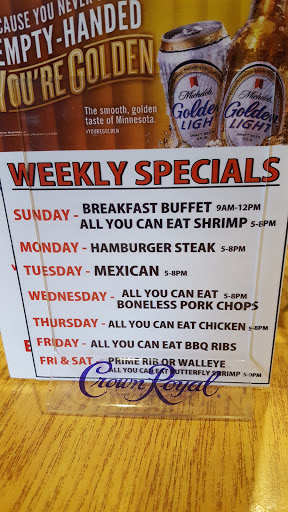 CAUSE YOU NEVER
EMPTY-HANDED
YOU'RE GOLDEN
The smooth, golden
taste of Minnesota.
#YOUREGOLDEN
Michelob
Golden
LIGHT
DRAFT BEER
Michelob
Golden
LIGHT
DRAFT BEER
WEEKLY SPECIALS
SUNDAY - BREAKFAST BUFFET 9AM-12PM
ALL YOU CAN EAT SHRIMP 5-8PM
MONDAY - HAMBURGER STEAK 5-8PM
TUESDAY - MEXICAN 5-8PM
WEDNESDAY - ALL YOU CAN EAT 5-8PM
BONELESS PORK CHOPS
THURSDAY - ALL YOU CAN EAT CHICKEN 5-8PM
FRIDAY - ALL YOU CAN EAT BBQ RIBS
FRI & SAT - PRIME RIB OR WALLEYE
ALL YOU CAN EAT BUTTERFLY SHRIMP 5-9PM
Crown Royal